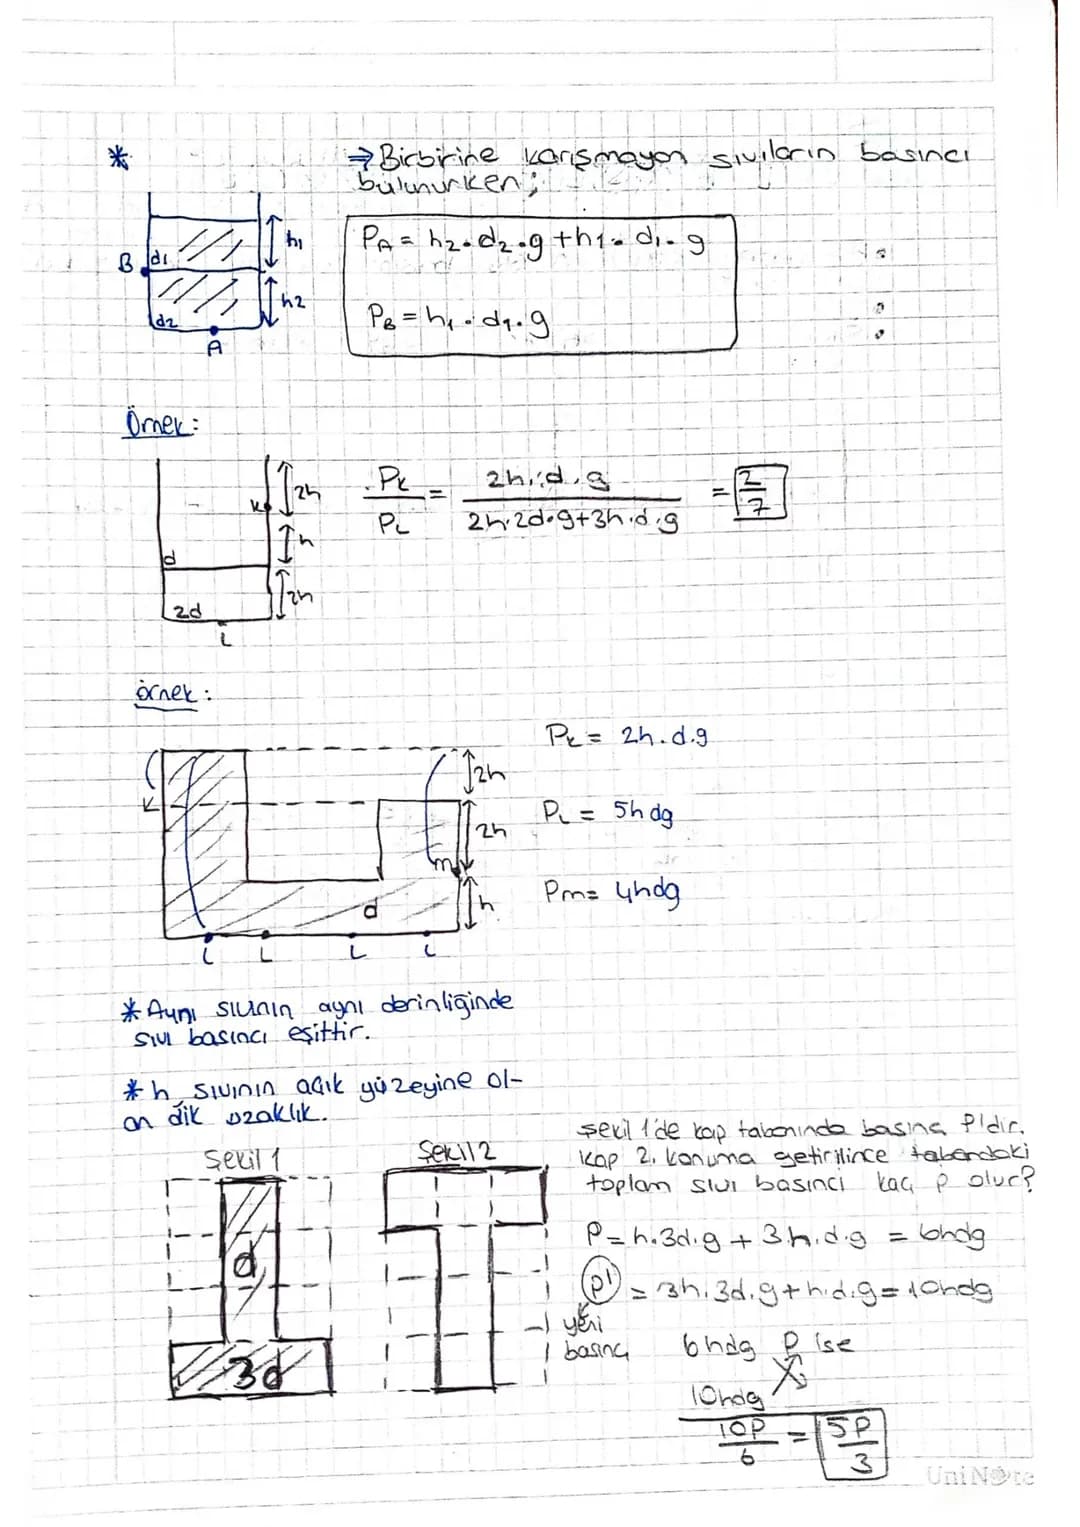 *
⇒ Birbirine karışmayan sıvıların basıncı
bulunurken;
h1
B
d1
h2
d2
A
PA = h2.d2.g + h1.d1.g
PB = h1.d1.g
Örnek:
K
2h
h
d
2h
2d
L
PK / PL = 2h.d.g / 2h.2d.g+3h.d.g = 2/7
örnek:
K
2h
2h
m
h
d
L L L L
PK = 2h.d.g
PL = 5hdg
Pm = 4hdg
* Aynı sıvının aynı derinliğinde
sıvı basıncı eşittir.
* h, sıvının açık yüzeyine ol-
an dik uzaklık.
Şekil 1
Şekil 2
d
3d
Şekil 1'de kap tabanında basınç P'dir.
Kap 2. konuma getirilince tabandaki
toplam sıvı basıncı kaç P olur?
P = h.3d.g + 3.h.d.g = 6hdg
P' = 3h.3d.g + h.d.g = 10hdg
yeni
basınç
6hdg P ise
10hdg
10P / 6 = 5P / 3
UniNote